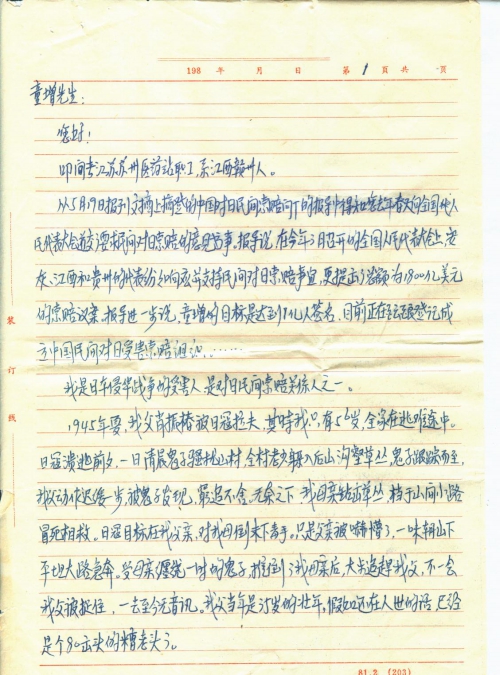 198 年 月 日 第 1 頁共 页
童增先生：
您好！
叩问者江苏苏州医药站职工，系江西赣州人。
从5月19日报刊文摘上摘登的中国对日民间索赔问 的报导中得知您去年春天向全国代人
民代表大会递交了要求民间对日索赔的意见书事，报导说，在今年3月召开的全国人民代表大会上，安
庆、江西和贵州的代表纷纷响应并支持民间对日索赔事宜，更提出了总额为1800亿美元
的索赔议案。报导进一步说，童增的目标是达到1亿人签名，目前正在 登记成
立中国民间对日受害索赔组织。……
我是日军侵华战争的受害人，是对日民间索赔关系人之一。
1945年夏，我父肖振椿被日冠拉夫，其时我只有5岁，全家在逃难途中。
日冠溃逃前夕，一日清晨鬼子骚扰山村，全村老少躲入后山沟壑草丛，鬼子跟踪而至，
我父动作迟缓一步，被鬼子发现，穷追不舍，无奈之下，我母亲钻出草丛，挡于山间小路
冒死相救。日冠目标在我父亲，对我母倒未下毒手。只是父亲被嚇懵了，一味朝山下
平地大路急奔，受母亲缠绕一时的鬼子，推倒了我母亲后，大步追赶我父，不一会
我父被抓住，一去至今无音讯。我父当年是35岁的壮年，假如还在人世的话，已经
是个80出头的糟老头了。
装
订
线
81.2 (203)